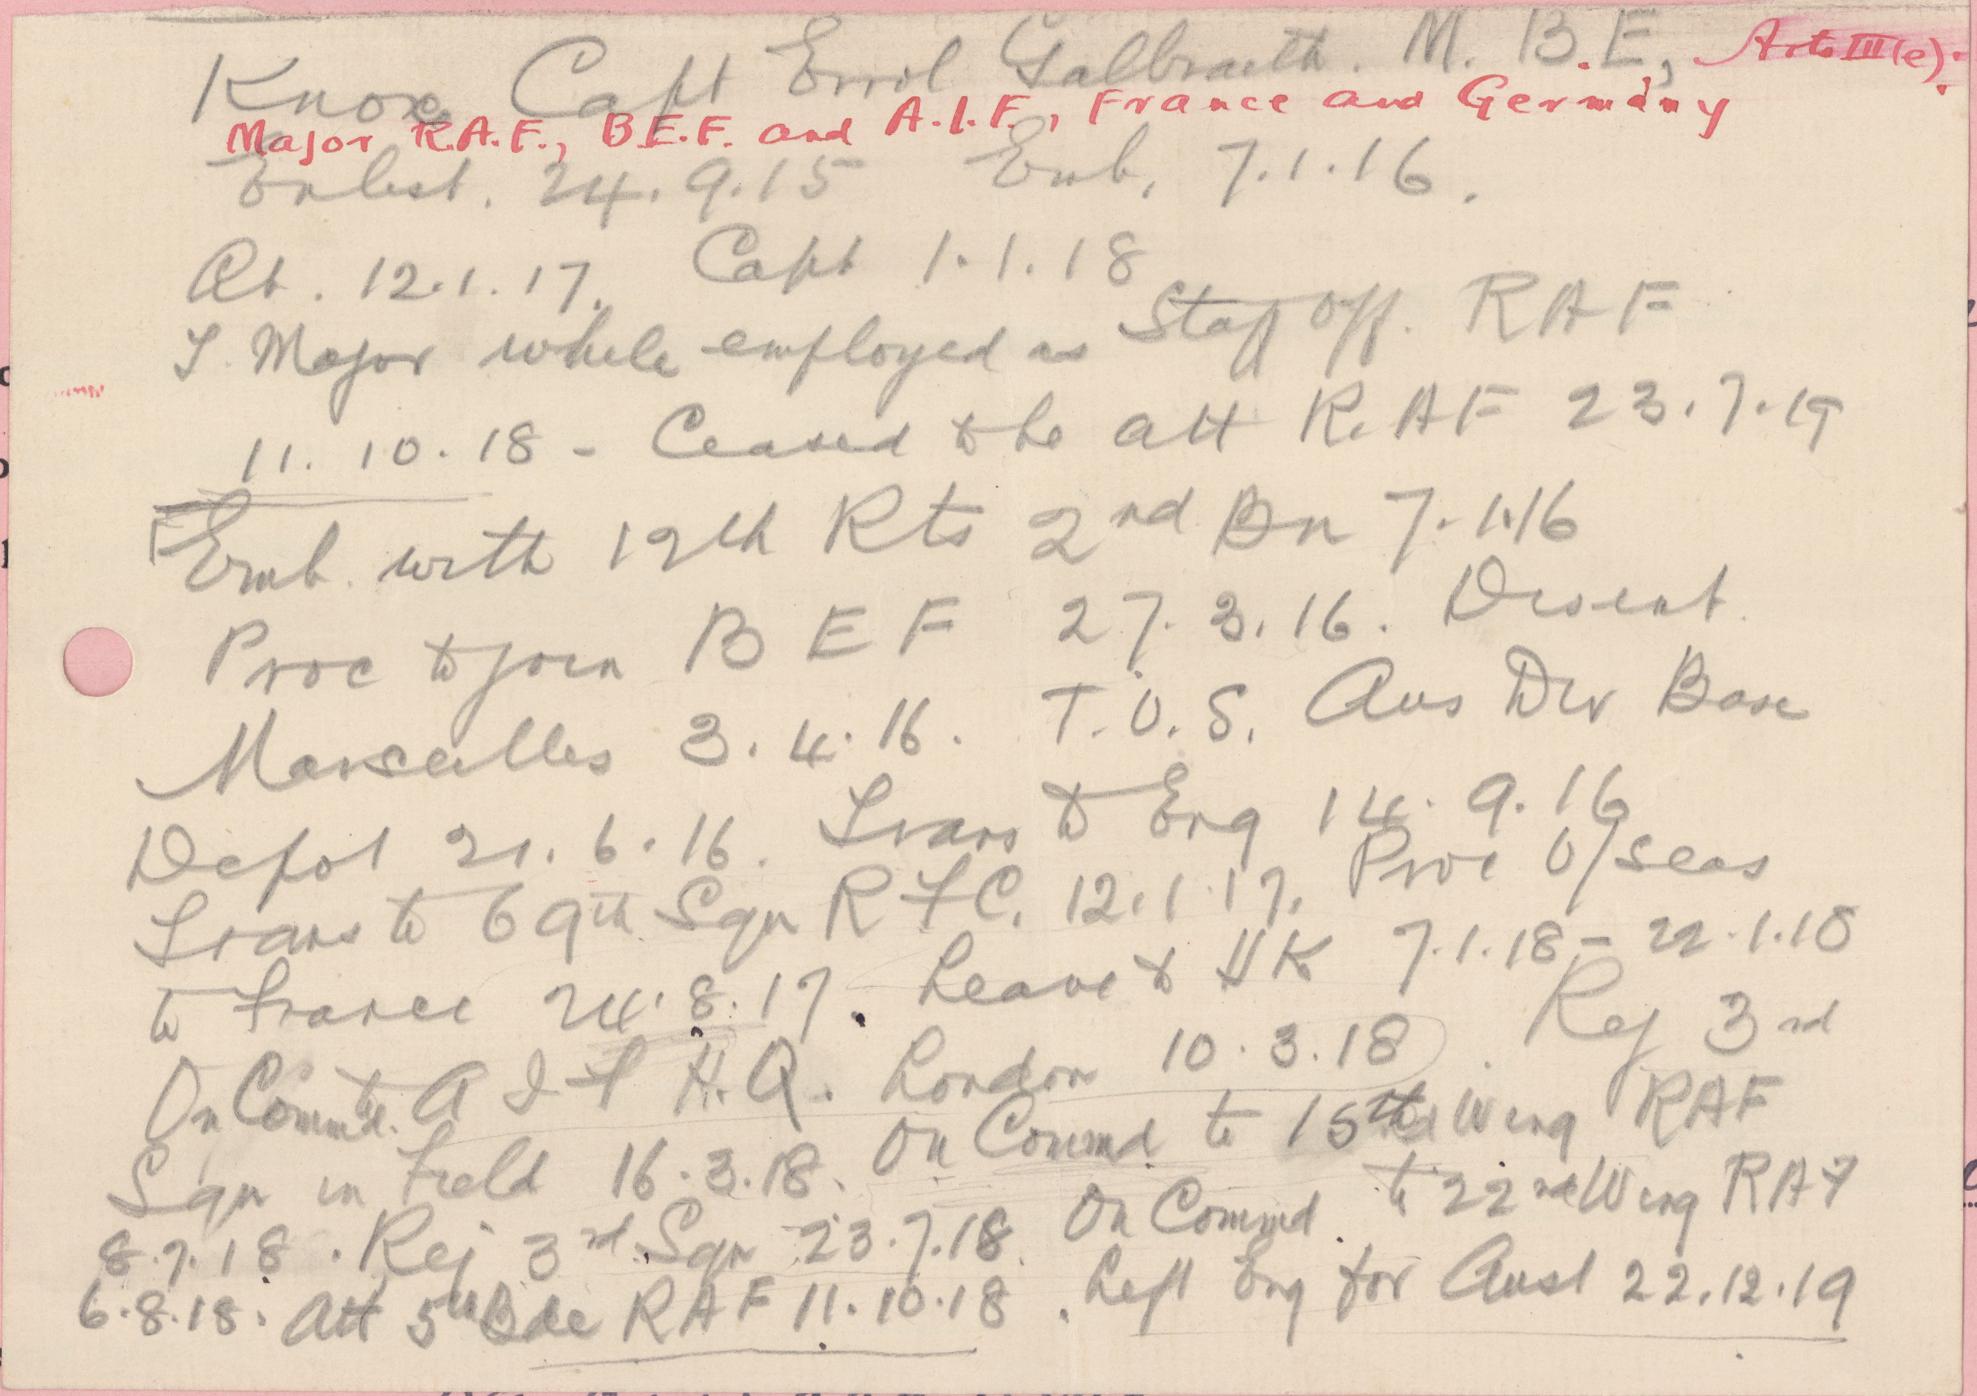 Knox, Capt Errol Galbraith. M.B.E, Arts III(e).
Major R.A.F., B.E.F. and A.I.F., France and Germany
Enlist. 24.9.15 Emb. 7.1.16.
Lt. 12.1.17. Capt 1.1.18
T. Major while employed as Staff Off. RAF
11.10.18 - Ceased to be att R.AF 23.7.19
Emb. with 19th Rts 2nd Bn 7.1.16
Proc to join B E F 27.3.16. Disemb.
Marseilles 3.4.16. T.O.S. Aus Div Base
Depot 21.6.16. Trans to Eng 14.9.16
Trans to 69th Sqn R F C. 12.1.17. Proc O/seas
to France 24.8.17. Leave to UK 7.1.18 - 22.1.18
On Commd. to A I F H.Q. London 10.3.18. Rej 3rd
Sqn in Field 16.3.18. On Commd to 15th Wing RAF
8.7.18. Rej 3rd Sqn 23.7.18. On Commd. to 22nd Wing RAF
6.8.18. Att 5th Bde RAF 11.10.18. Left Eng for Aust 22.12.19